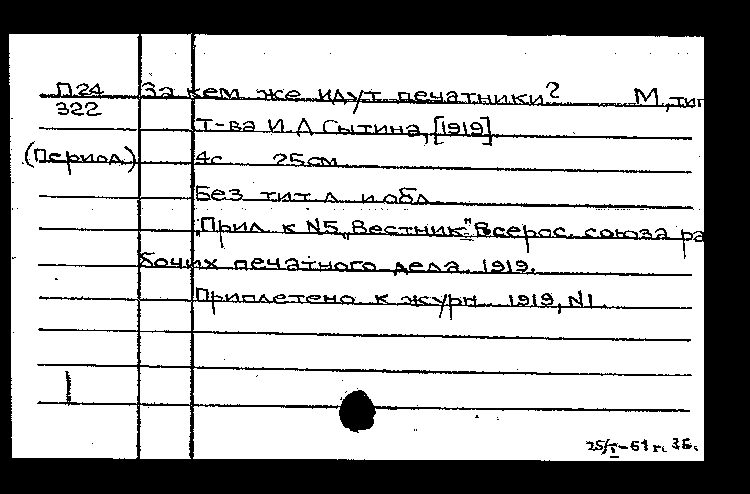 П24 За кем же идут печатники? М, тип
322
т-ва И.Д Сытина, [1919]
(Период) 4с 25см
Без тит л и обл
"Прил к N5 „Вестник" Всерос. союза ра
бочих печатного дела. 1919.
Приплетено к журн 1919, N1.